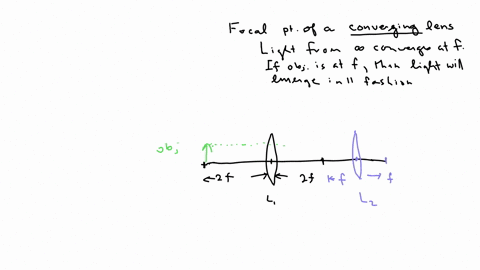 Focal pt. of a converging lens
Light from ∞ converge at f.
If obj. is at f, then light will
emerge in || fashion
obj
2f 2f f f
L1
L2